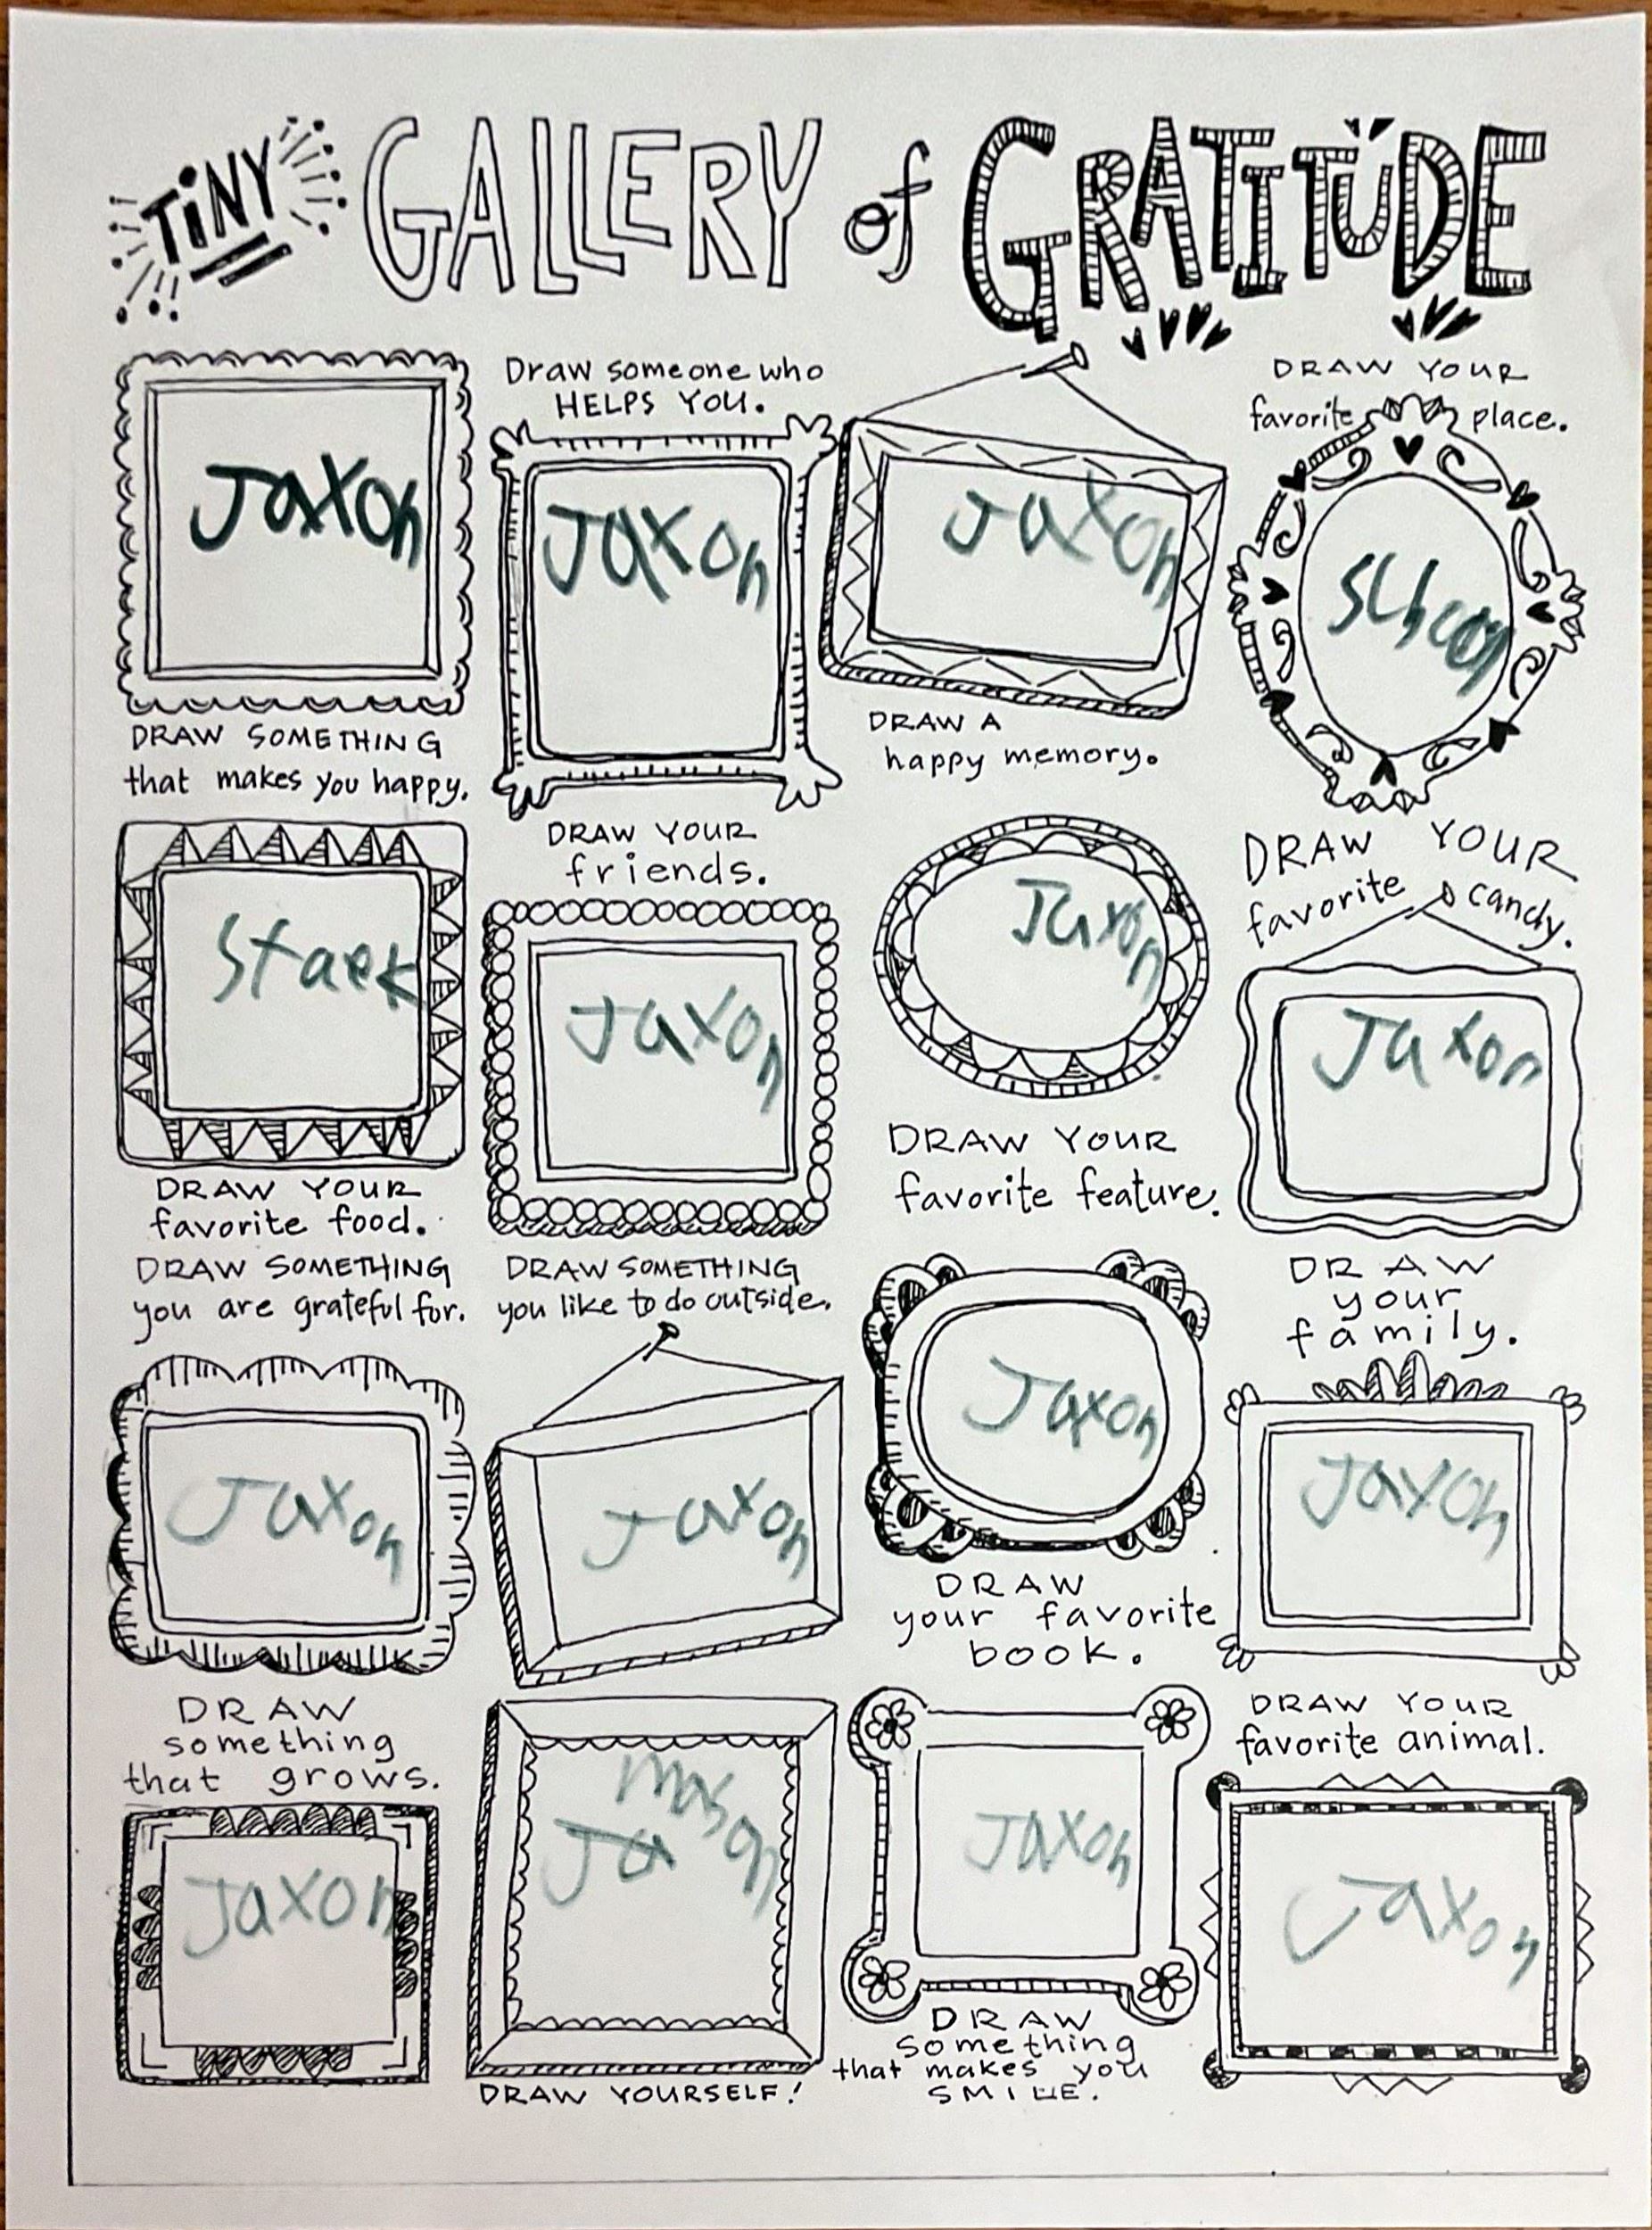 TiNY GALLERY of GRATITUDE
Jaxon
DRAW SOMETHING
that makes you happy.
Draw someone who
HELPS YOU.
Jaxon
Jaxon
DRAW A
happy memory.
DRAW YOUR
favorite place.
Staek
DRAW YOUR
favorite food.
DRAW YOUR
friends.
Jaxon
Jaxon
DRAW YOUR
favorite feature.
DRAW YOUR
favorite candy.
Jaxon
DRAW SOMETHING
you are grateful for.
Jaxon
DRAW SOMETHING
you like to do outside.
Jaxon
Jaxon
DRAW
your favorite
book.
DRAW
your
family.
Jaxon
DRAW
something
that grows.
Jaxon
DRAW YOURSELF!
Jaxon
DRAW
something
that makes you
SMILE.
DRAW YOUR
favorite animal.
Jaxon